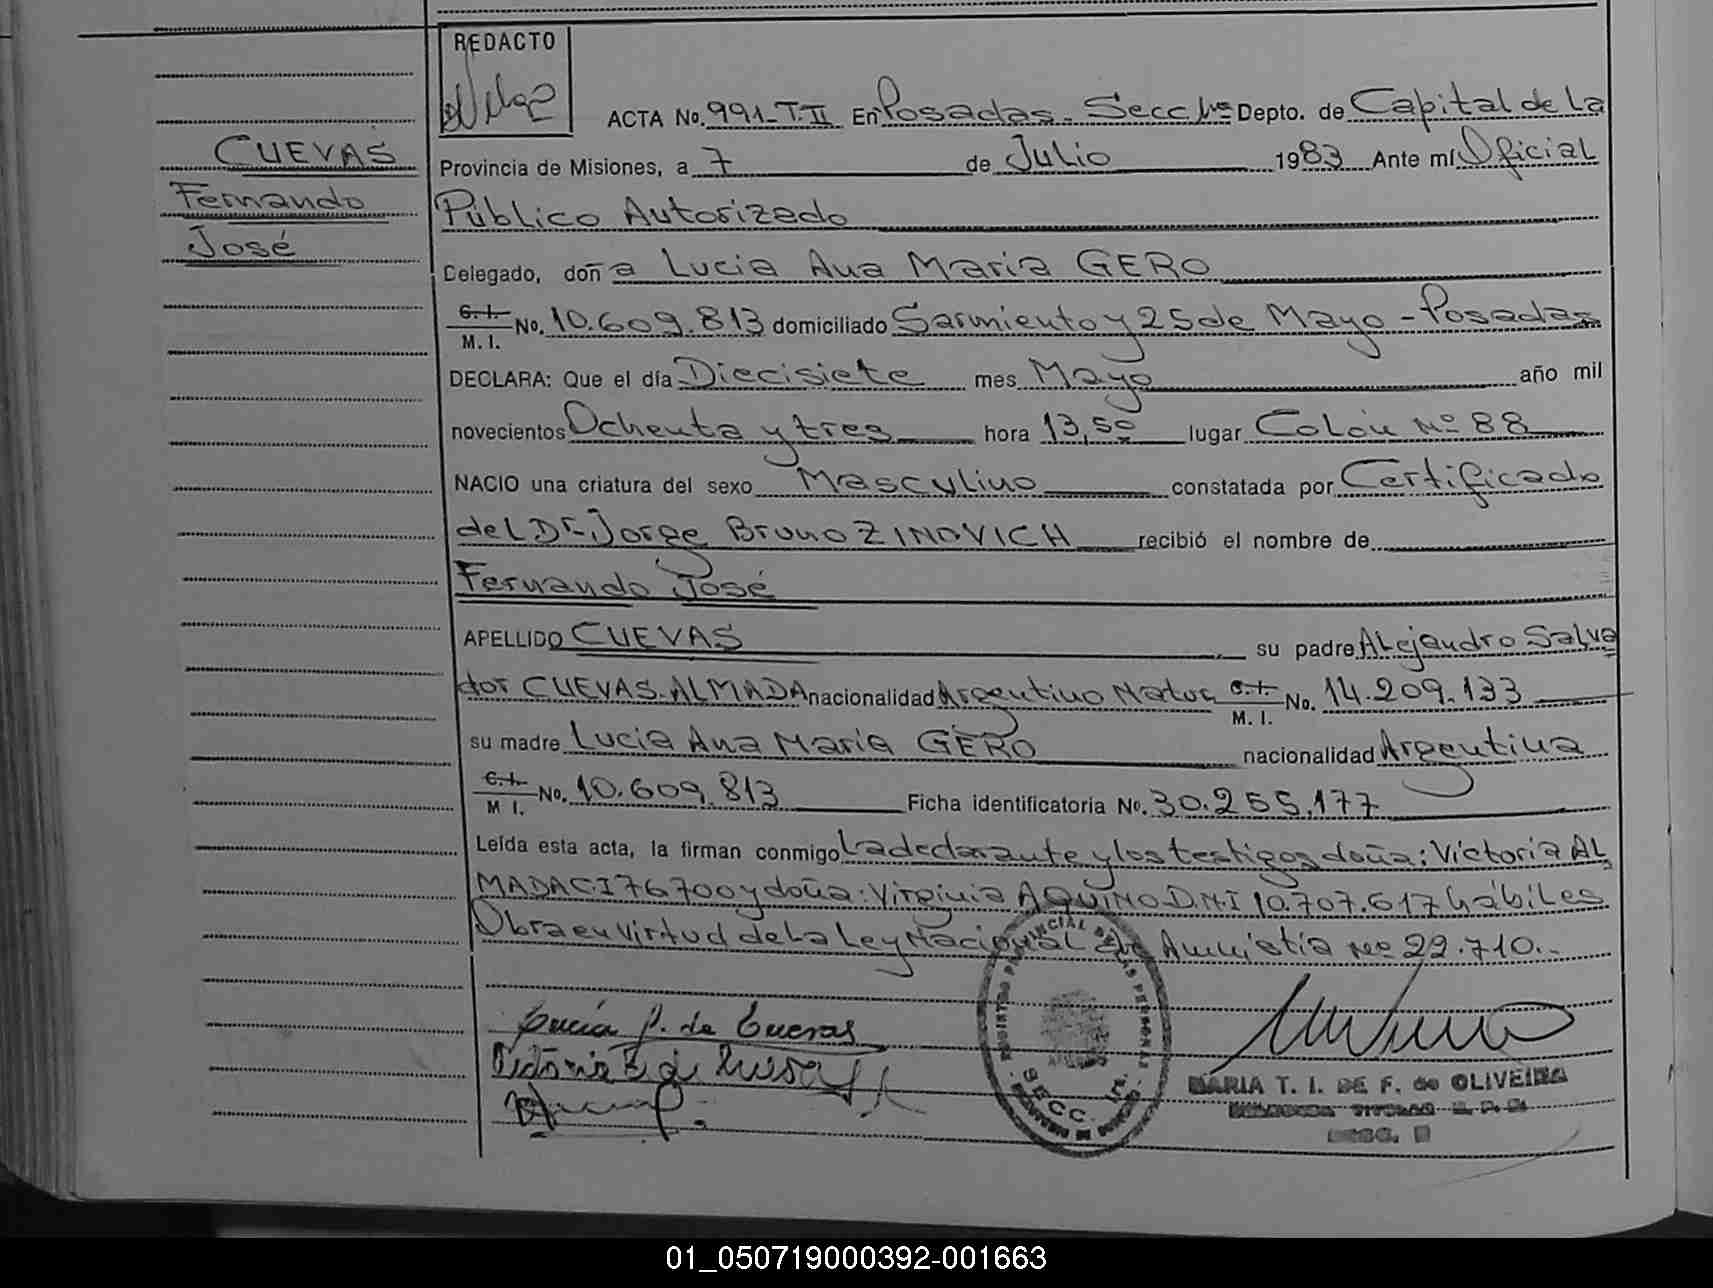 REDACTO
ACTA No. 991-T.II En Posadas-Secc 1ra Depto. de Capital de La
CUEVAS
Fernando
José
Provincia de Misiones, a 7 de Julio 1983 Ante mí Oficial
Público Autorizado
Delegado, doña Lucia Ana Maria GERO
C.I. M.I. No. 10.609.813 domiciliado Sarmiento y 25 de Mayo - Posadas
DECLARA: Que el día Diecisiete mes Mayo año mil
novecientos Ochenta y tres hora 13,50 lugar Colón Nº 88
NACIO una criatura del sexo Masculino constatada por Certificado
del Dr. Jorge Bruno ZINOVICH recibió el nombre de
Fernando José
APELLIDO CUEVAS su padre Alejandro Salva
dor CUEVAS-ALMADA nacionalidad Argentino Natur C.I. M.I. No. 14.209.133
su madre Lucia Ana Maria GERO nacionalidad Argentina
C.I. M I. No. 10.609.813 Ficha identificatoria No. 30.255.177
Leída esta acta, la firman conmigo La declarante y los testigos doña: Victoria AL
MADA CI 76700 y doña: Virginia AQUINO D.N.I 10.707.617 hábiles
Obra en virtud de La Ley Nacional de Amnistía Nº 22.710.-
Lucía G. de Cuevas
REGISTRO PROVINCIAL DE LAS PERSONAS
SECC. 1ra
MARIA T. I. DE F. de OLIVEIRA
01_050719000392-001663